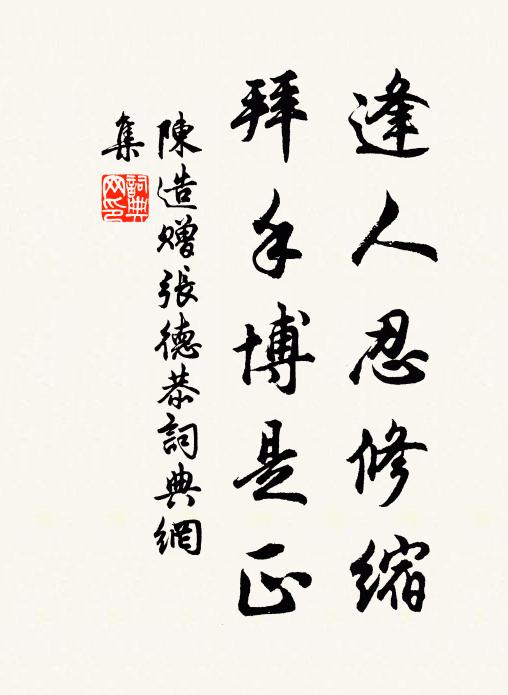 逢人忍修縮
拜手博是正
陳造贈張德恭詞典網
集
詞典網印